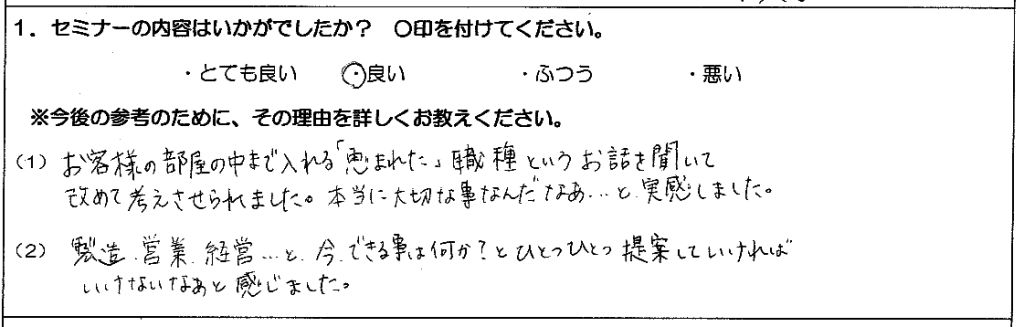 1．セミナーの内容はいかがでしたか？　〇印を付けてください。
・とても良い　・良い　・ふつう　・悪い
※今後の参考のために、その理由を詳しくお教えください。
(1) お客様の部屋の中まで入れる「恵まれた」職種というお話を聞いて
改めて考えさせられました。本当に大切な事なんだなあ…と実感しました。
(2) 製造、営業、経営…と、今、できる事は何か？とひとつひとつ提案していければ
いけないなあと感じました。